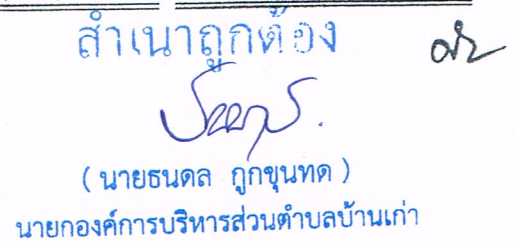 สำเนาถูกต้อง
(นายธนดล กูกขุนทด)
นายกองค์การบริหารส่วนตำบลบ้านเก่า